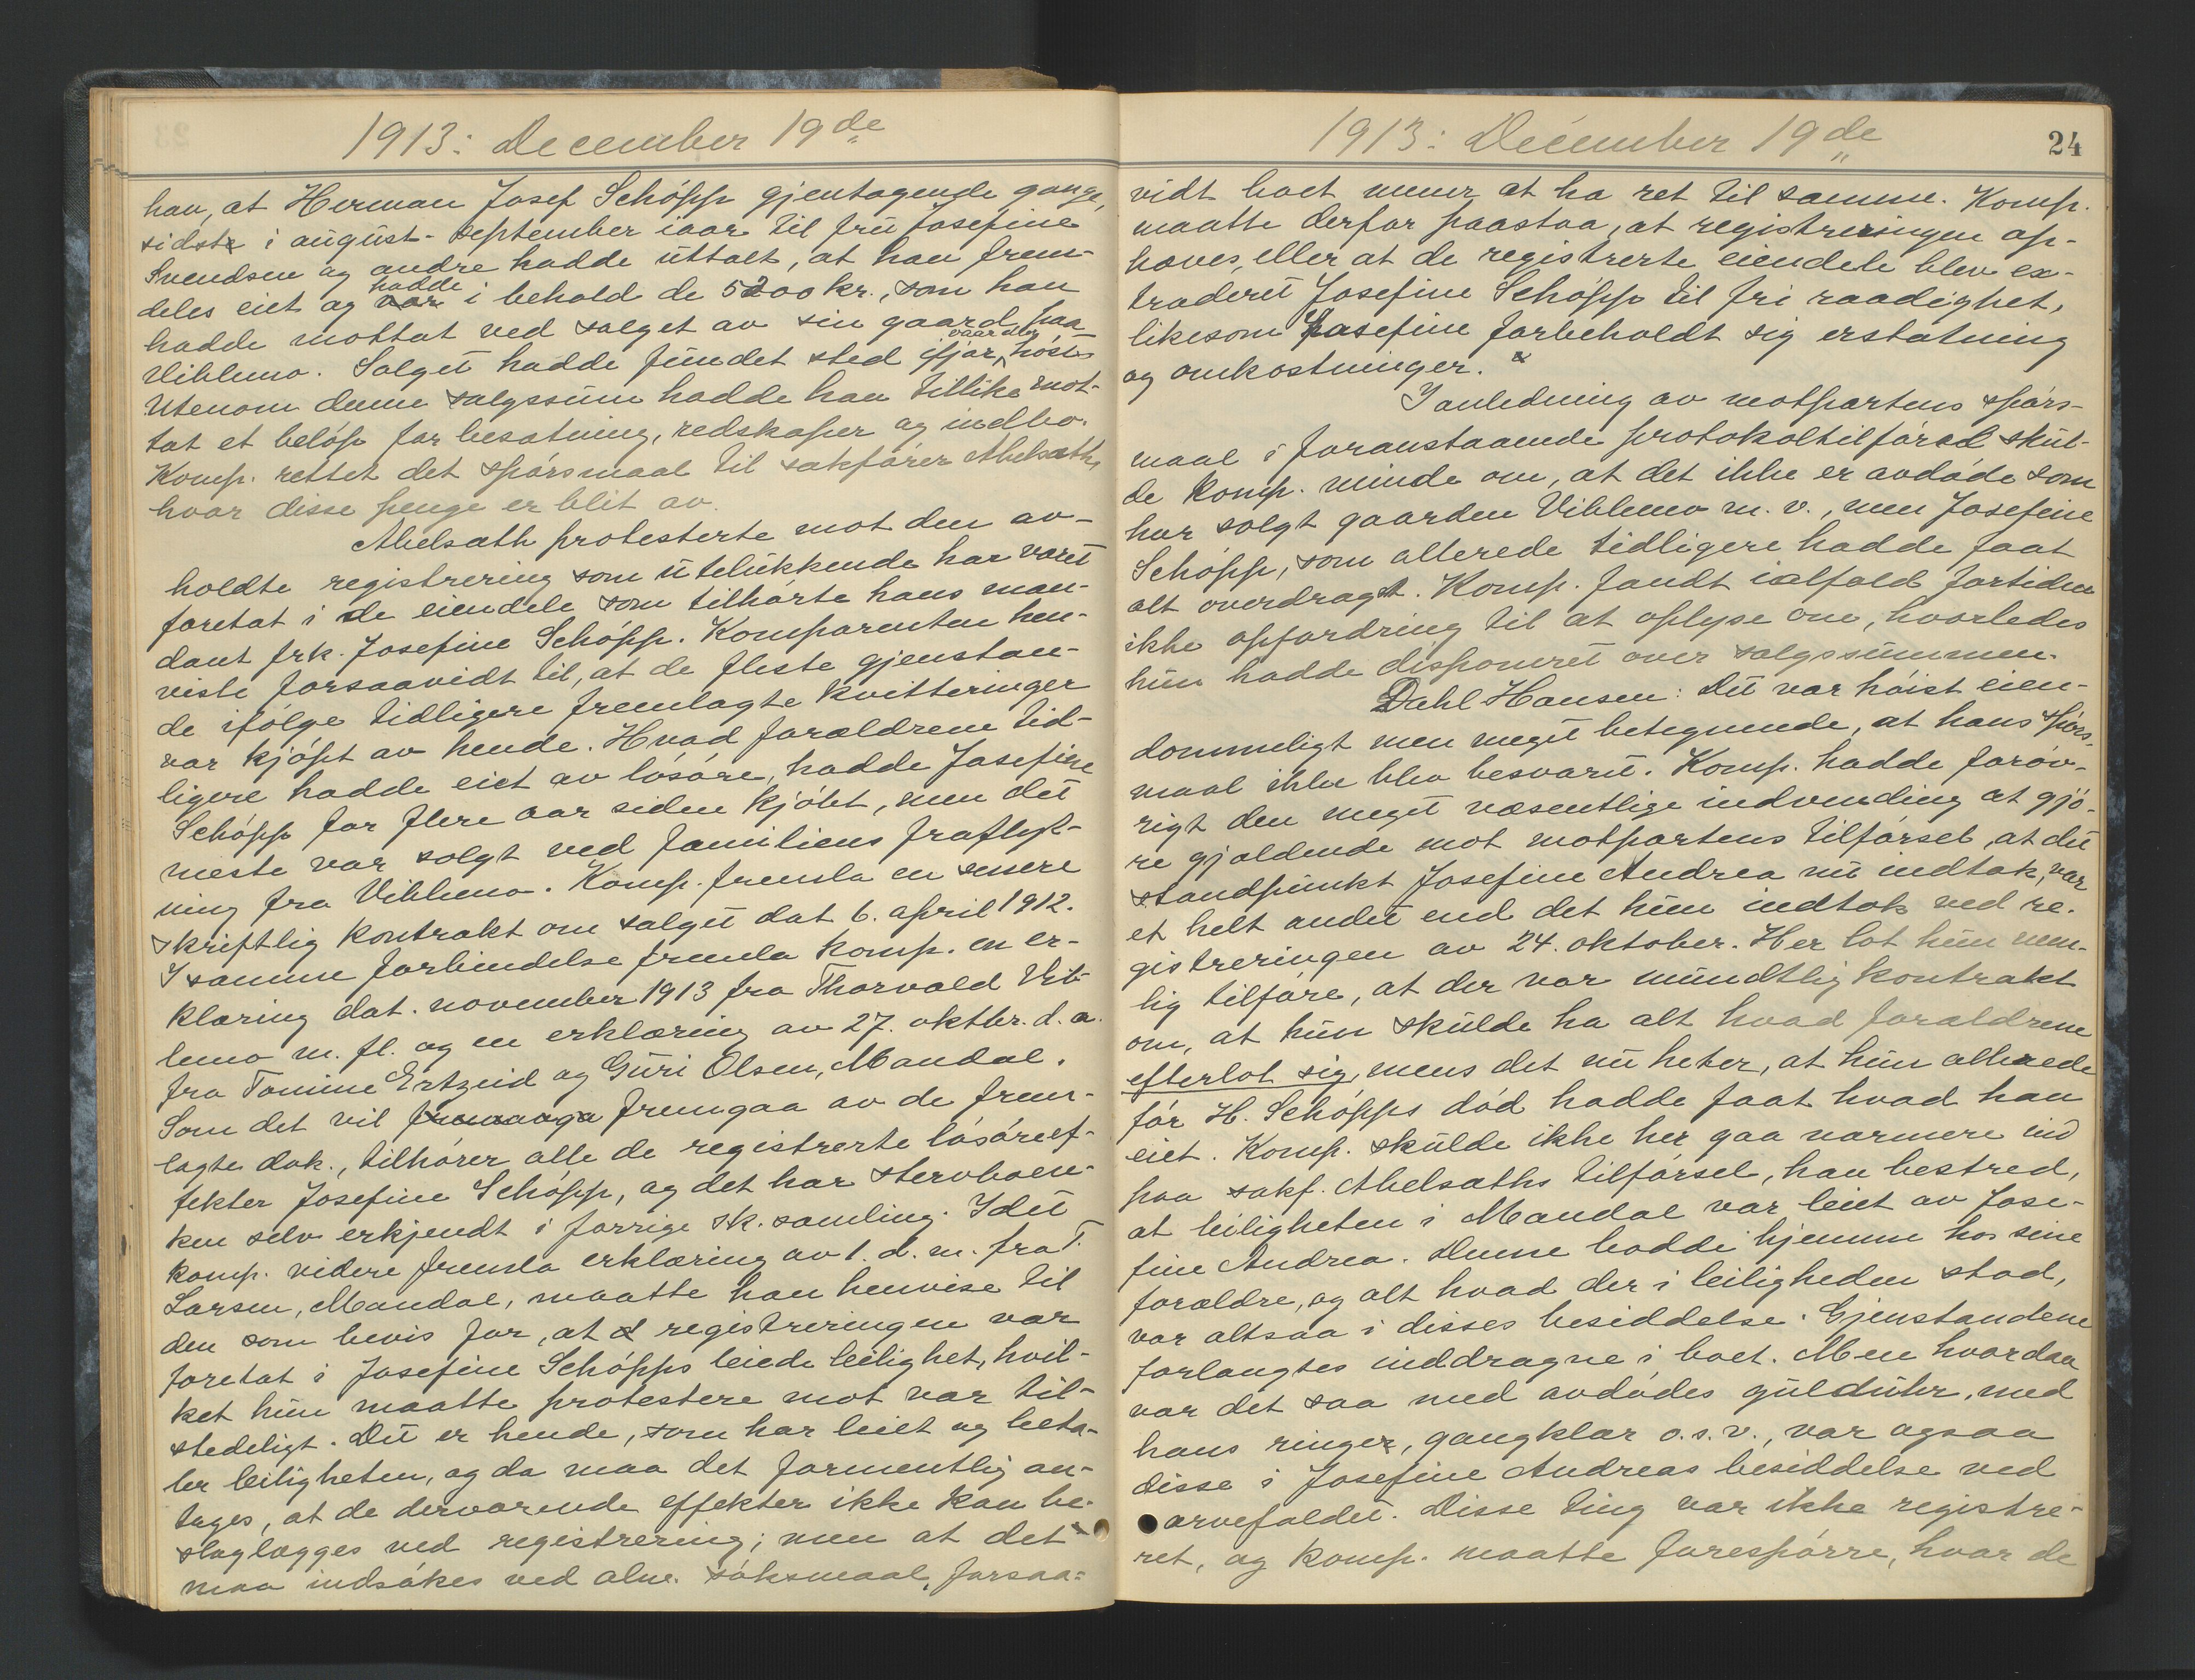 1913: December 19de
han, at Herman Josef Schöpp gjentagende gange,
sidste i august-september iaar til fru Josefine
Svendsen og andre hadde uttalt, at han frem-
hadde
deles eiet og var i behold de 5200 kr., som han
hadde mottat ved salget av sin gaard paa
vaar eller
Viblemo. Salget hadde fundet sted ifjor, høstes
Utenom denne salgssum hadde han tillike mot-
tat et beløp for besætning, redskaper og indbo.
Komp. rettet det spørsmaal til sakfører Abelsæth,
hvor disse penge er blit av.
Abelsæth protesterte mot den av-
holdte registrering som utelukkende har været
foretat i de eiendele som tilhørte hans man-
dant frk. Josefine Schöpp. Komparenten hen-
viste forsaavidt til, at de fleste gjenstan-
de ifølge tidligere fremlagte kvitteringer
var kjøpt av hende. Hvad forældrene tid-
ligere hadde eiet av løsøre, hadde Josefine
Schöpp for flere aar siden kjøbt, men det
meste var solgt ved familiens fraflyt-
ning fra Viblemo. Komp. fremla en senere
skriftlig kontrakt om salget dat 6. april 1912.
I samme forbindelse fremla komp. en er-
klæring dat. november 1913 fra Thorvald Vib-
lemo m. fl. og en erklæring av 27. oktbr. d. a.
fra Tomine Ertzeid og Guri Olsen, Mandal.
Som det vil fremgaa av de frem-
lagte dok., tilhører alle de registrerte løsøreef-
fekter Josefine Schöpp, og det har stervboen-
ken selv erkjendt i forrige sk. samling. Idet
komp. videre fremla erklæring av 1. d. m. fra T.
Larsen, Mandal, maatte han henvise til
den som bevis for, at registreringen var
foretat i Josefine Schöpps leiede leilighet, hvil-
ket hun maatte protestere mot var til-
stedeligt. Det er hende, som har leiet og beta-
ler leiligheten, og da maa det formentlig an-
tages, at de derværende effekter ikke kan be-
slaglægges ved registrering; men at det
maa indsøkes ved alm. søksmaal, forsaa-
1913: December 19de
24
vidt boet mener at ha ret til samme. Komp.
maatte derfor paastaa, at registreringen op-
hæves, eller at de registrerte eiendele blev ex-
traderet Josefine Schöpp til fri raadighet,
likesom Josefine forbeholdt sig erstatning
og omkostninger.
I anledning av motpartens spørs-
maal i foranstaaende protokoltilførsel skul-
de komp. minde om, at det ikke er avdøde som
har solgt gaarden Viblemo m. v., men Josefine
Schöpp, som allerede tidligere hadde faat
alt overdraget. Komp. fandt ialfald fortiden
ikke opfordring til at oplyse om, hvorledes
hun hadde disponeret over salgssummen.
Dahl Hansen: Det var høist eien-
dommeligt men meget betegnende, at hans spørs-
maal ikke blev besvaret. Komp. hadde forøv-
rigt den meget væsentlige indvending at gjø-
re gjældende mot motpartens tilførsel, at det
standpunkt Josefine Andrea nu indtok, var
et helt andet end det hun indtok ved re-
gistreringen av 24. oktober. Her lot hun nem-
lig tilføre, at der var mundtlig kontrakt
om, at hun skulde ha alt hvad forældrene
efterlot sig, mens det nu heter, at hun allerede
før H. Schöpps død hadde faat hvad han
eiet. Komp. skulde ikke her gaa nærmere ind
paa sakf. Abelsæths tilførsel, han bestred,
at leiligheten i Mandal var leiet av Jose-
fine Andrea. Denne bodde hjemme hos sine
forældre, og alt hvad der i leiligheden stod,
var altsaa i disses besiddelse. Gjenstandene
forlangtes inddragne i boet. Men hvordan
var det saa med avdødes guldubr, med
hans ringer, gangklær o.s.v., var ogsaa
disse i Josefine Andreas besiddelse ved
arvefaldet. Disse ting var ikke registre-
ret, og komp. maatte forespørre, hvor de